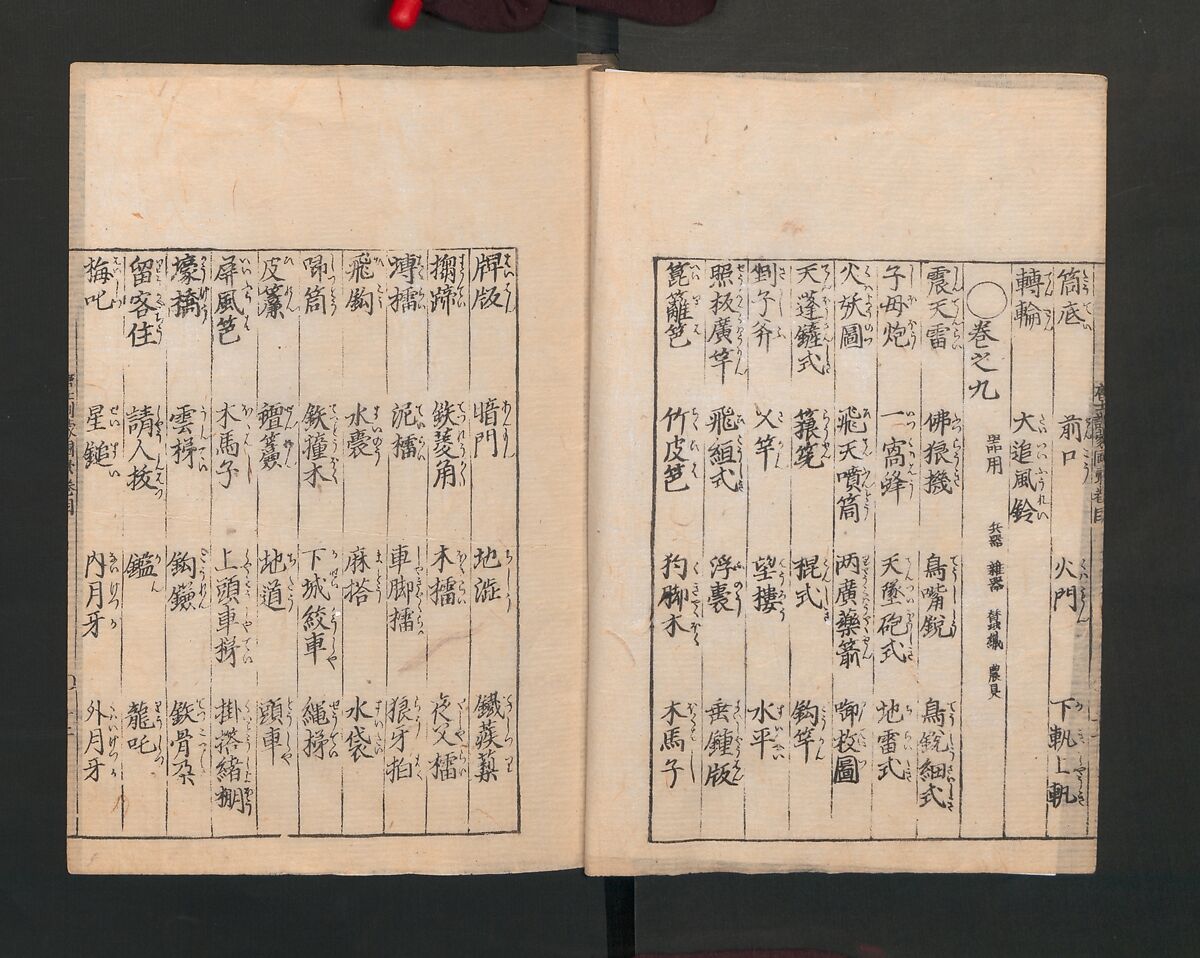 筒底 前口 火門 下軓上軓
轉輪 大追風鈴
〇巻之九 器用 兵器 雜器 蠶織 農具
震天雷 佛狼機 鳥嘴銃 鳥銃細式
子母炮 一窩蜂 天墜砲式 地雷式
火妖圖 飛天噴筒 两廣藥箭 啣枚圖
天蓬鏟式 筤筅 棍式 鈎竿
剉子斧 火竿 望樓 水平
照板廣竿 飛絙式 浮嚢 垂鍾版
篦籬笆 竹皮笆 狗脚木 木馬子
牌版 暗門 地澁 鐵蒺藜
搊蹄 鉄菱角 木檑 夜叉檑
塼檑 泥檑 車脚檑 狼牙拍
飛鈎 水嚢 麻搭 水袋
唧筒 鉄撞木 下城絞車 繩梯
皮簾 氊簾 地道 頭車
屏風笆 木馬子 上頭車梯 掛搭緒棚
壕橋 雲梯 鈎鎌 鉄骨朶
留客住 請人拔 鑑 龍吒
梅叱 星鎚 内月牙 外月牙